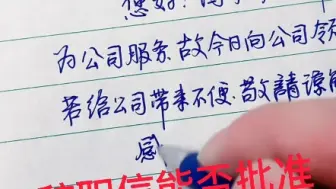 您好
为公司服务.故今日向公司
若给公司带来不便.敬請谅
感
辞职信能否批准